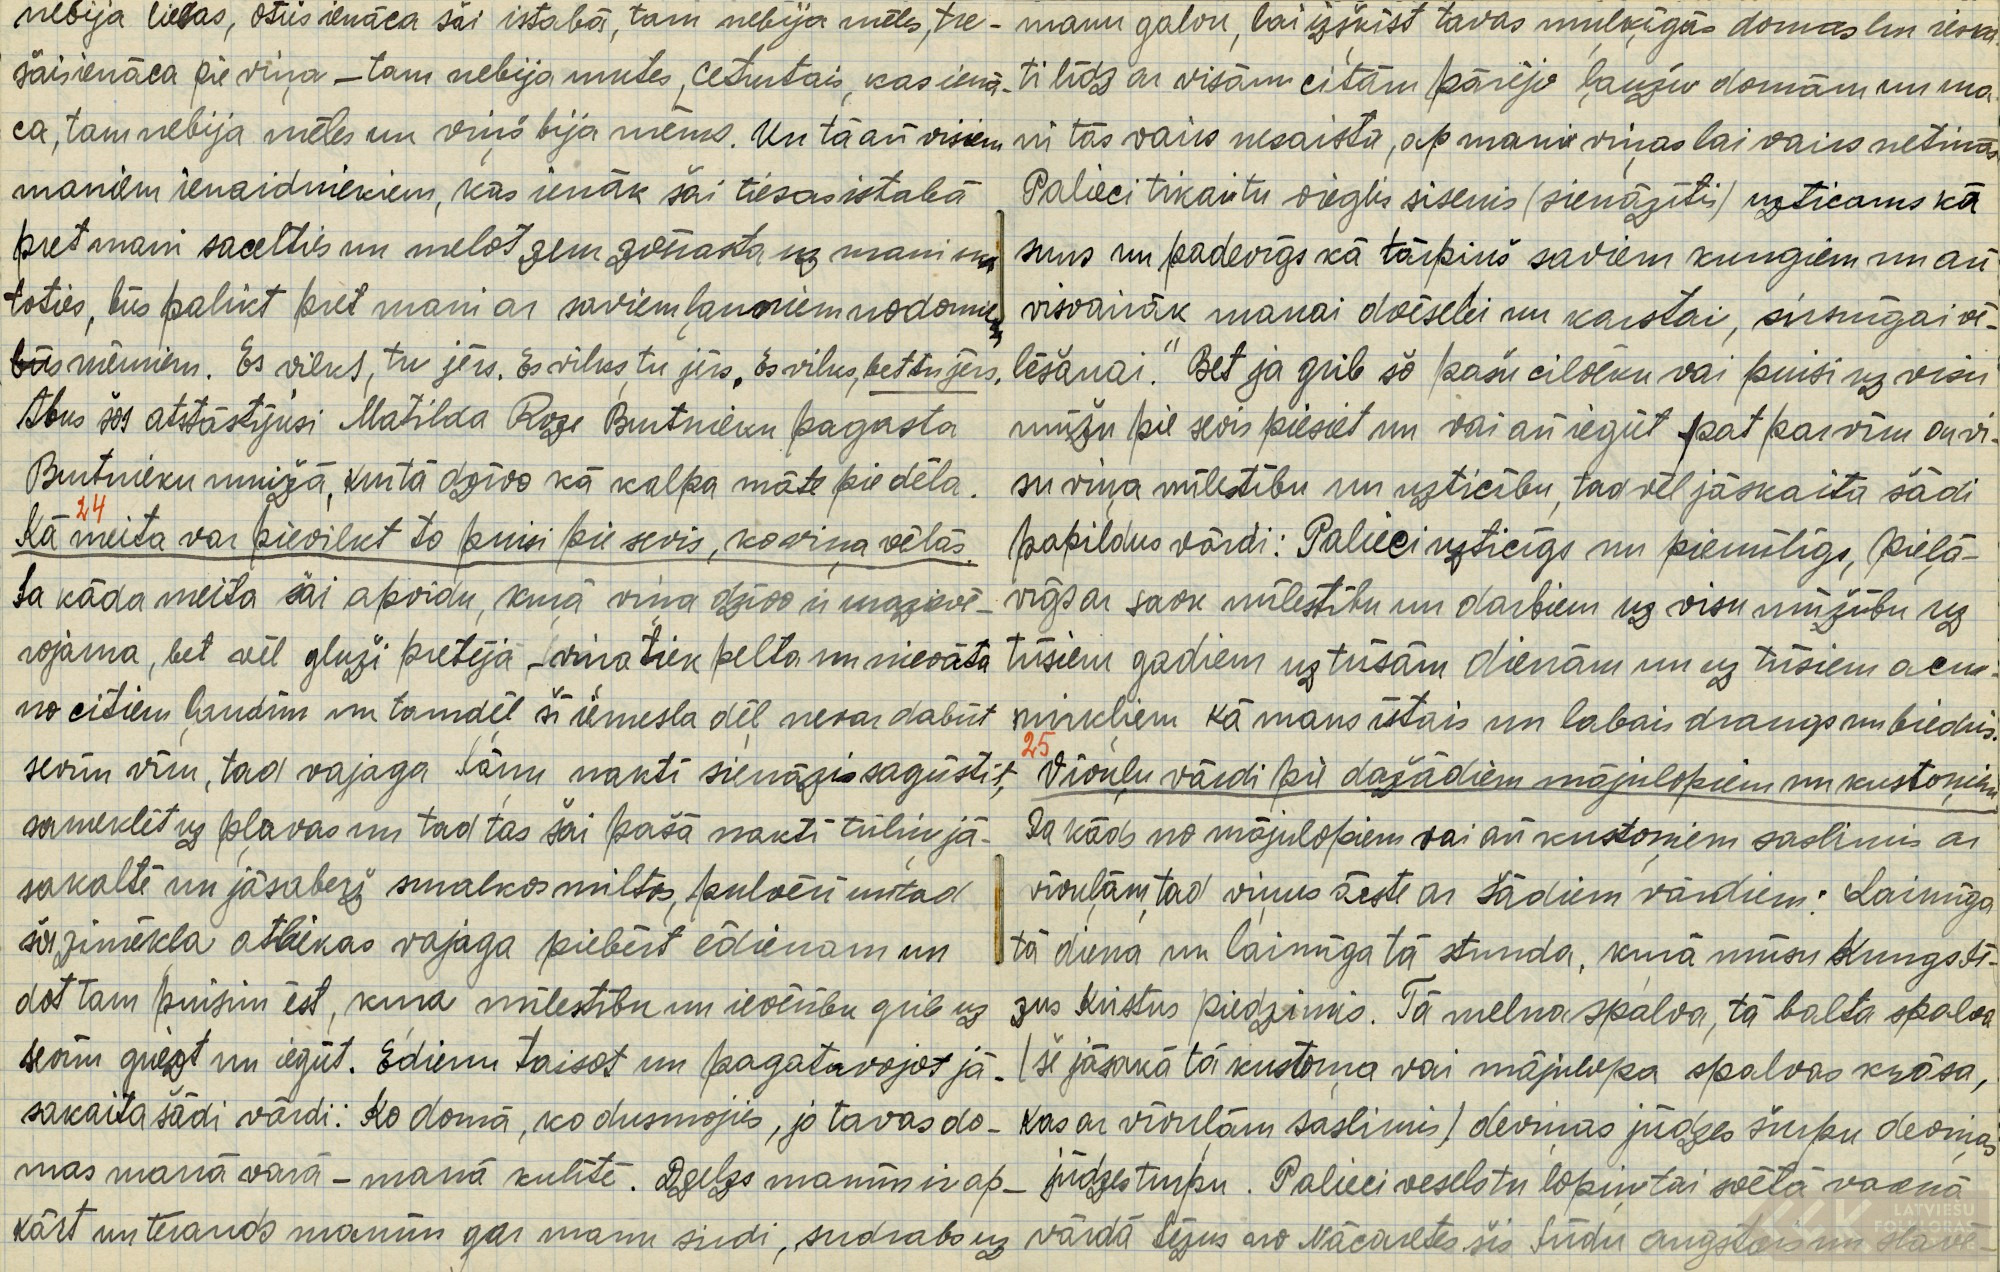 nebija liesas, otrs ienāca šai istabā, tam nebija mēles, tre-
šais ienāca pie viņa – tam nebija mutes, ceturtais, kas ienā-
ca, tam nebija mēles un viņš bija mēms. Un tā arī visiem
maniem ienaidniekiem, kas ienāk šai tiesas istabā
pret mani sacelties un melot zem zvērasta uz mani un
toties, būs palikt pret mani ar saviem ļauniem nodomiem
būs mēmiem. Es vilks, tu jērs. Es vilks, tu jērs. Es vilks, bet tu jērs.
Abus šos atstāstījusi Matilda Roze Burtnieku pagasta
Burtnieku muižā, kur tā dzīvo kā kalpa māte pie dēla.
24
Kā meita var pievilkt to puisi pie sevis, ko viņa vēlās.
Ja kāda meita šai apvidū, kurā viņa dzīvo ir maz ievē-
rojama, bet vēl gluži pretēja – viņa tiek pelta un nievāta
no citiem ļaudīm un tamdēļ šī iemesla dēļ nevar dabūt
sevim vīru, tad vajaga Jāņu naktī sienāzis sagūstīt,
sameklēt uz pļavas un tad tas šai pašā naktī tūliņ jā-
sakaltē un jāsaberž smalkos miltos, pulverī un tad
šīs zīmēkļa atliekas vajaga piebērt ēdienam un
dot tam puisim ēst, kura mīlestību un ievērību grib uz
sevim griezt un iegūt. Ēdienu taisot un pagatavojot jā-
sakaita šādi vārdi: Ko domā, ko dusmojies, jo tavas do-
mas manā varā – manā kulītē. Dzelzs manim ir ap-
kārt un tērauds manim gar manu sirdi, sudrabs uz
manu galvu, lai izšķīst tavas muļķīgās domas un
ti līdz ar visām citām pārējo ļaužu domām un ma-
ni tās vairs nesaista, ap mani viņas lai vairs netinās
Palieci tikai tu vieglis sisenis (sienāzītis) uzticams kā
suns un padevīgs kā tārpiņš saviem kungiem un arī
visvairāk manai dvēselei un karstai, sirsnīgai vē-
lēšanai." Bet ja grib šo pašu cilvēku vai puisi uz visu
mūžu pie sevis piesiet un vai arī iegūt pat par vīru ar vi-
su viņa mīlestību un uzticību, tad vēl jāskaita šādi
papildus vārdi: Palieci uzticīgs un piemīlīgs, pieļā-
vīgs ar savu mīlestību un darbiem uz visu mūžību uz
tūsiem gadiem uz tūsām dienām un uz tūsiem acu-
mirkļiem kā mans īstais un labais draugs un biedrs.
25
Vīveļu vārdi pie dažādiem mājulopiem un kustoņiem
Ja kāds no mājulopiem vai arī kustoņiem saslimis ar
vīveļām, tad viņus ārste ar šādiem vārdiem: Laimīga
tā diena un laimīga tā stunda, kurā mūsu Kungs Jē-
zus Kristus piedzimis. Tā melna spalva, tā balta spalva
(še jāsakā tā kustoņa vai mājulopa spalvas krāsa,
kas ar vīveļām saslimis) deviņas jūdzes šurpu deviņas
jūdzes turpu. Palieci vesels tu lopiņ tai svētā vārdā
vārdā Jēzus no Nācaretes šis Jūdu augstais un slavē-